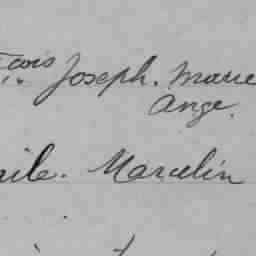 çois Joseph. Marie
Ange.
aile. Marcelin